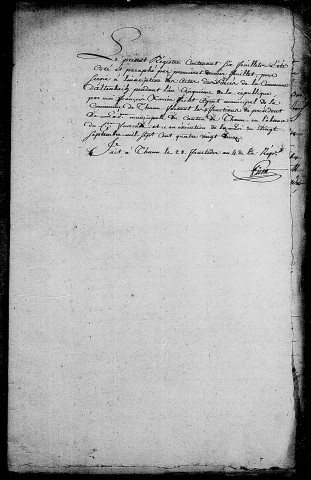 Le présent Registre Contenant six feuillets a été
Coté et paraphé par premier et dernier feuillet pour
servir à l'inscription des Actes de Décès de la Commune
pendant l'an Cinquième de la république
par moi françois Xavier agent municipal de la
Commune de Thann faisant les fonctions de président
de l'adm. municipale du Canton de Thann en l'absence
du en exécution de la Loi du Vingt
septembre mil sept cent quatre vingt douze
fait à Thann le 28 fructidor an 4 de la Rép.